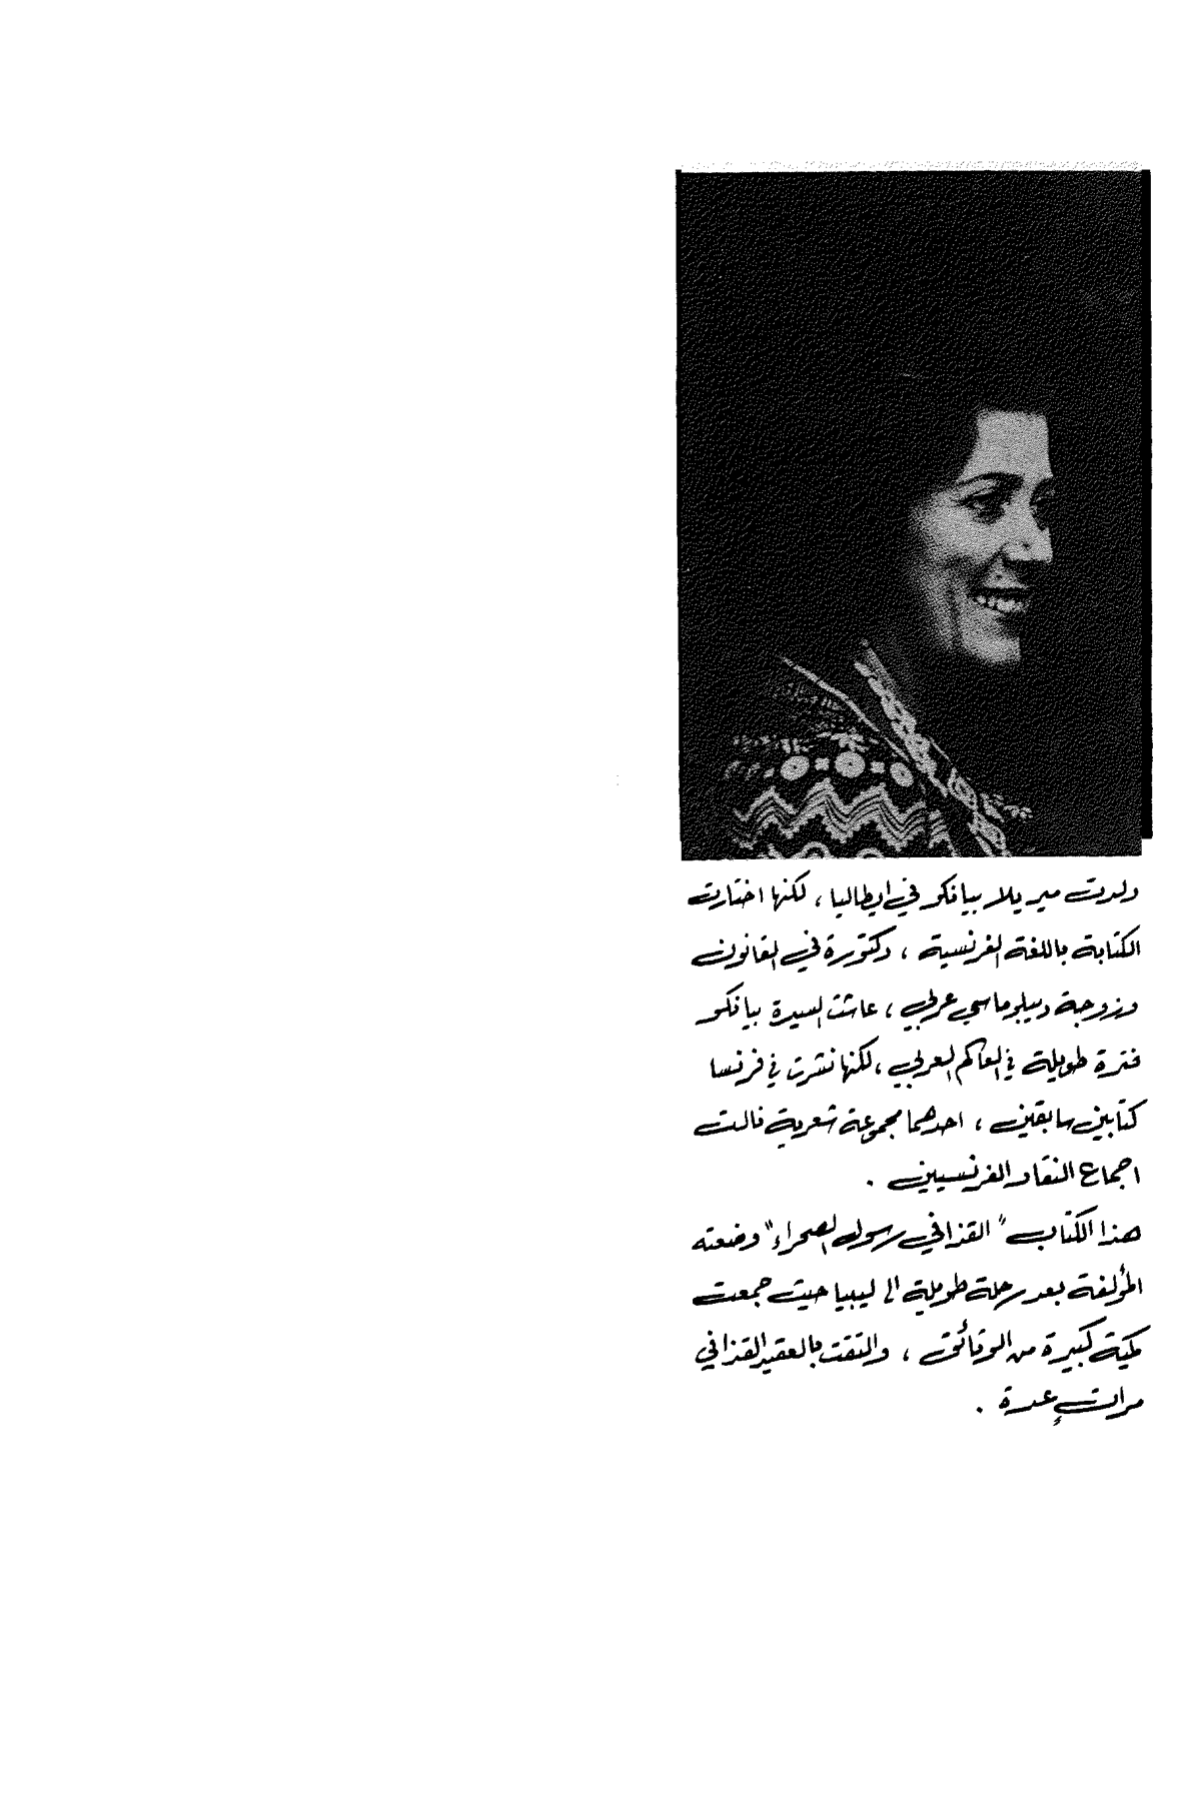 ولدت ميريلا بيانكو في ايطاليا ، لكنها اختارت
الكتابة باللغة الفرنسية ، دكتورة في القانون
وزوجة ديبلوماسي عربي ، عاشت السيدة بيانكو
فترة طويلة في العالم العربي ، لكنها نشرت في فرنسا
كتابين سابقين ، احدهما مجموعة شعرية نالت
اجماع النقاد الفرنسيين .
هذا الكتاب " القذافي رسول الصحراء " وضعته
المؤلفة بعد رحلة طويلة الى ليبيا حيث جمعت
كمية كبيرة من الوثائق ، والتقت بالعقيد القذافي
مراتٍ عدة .